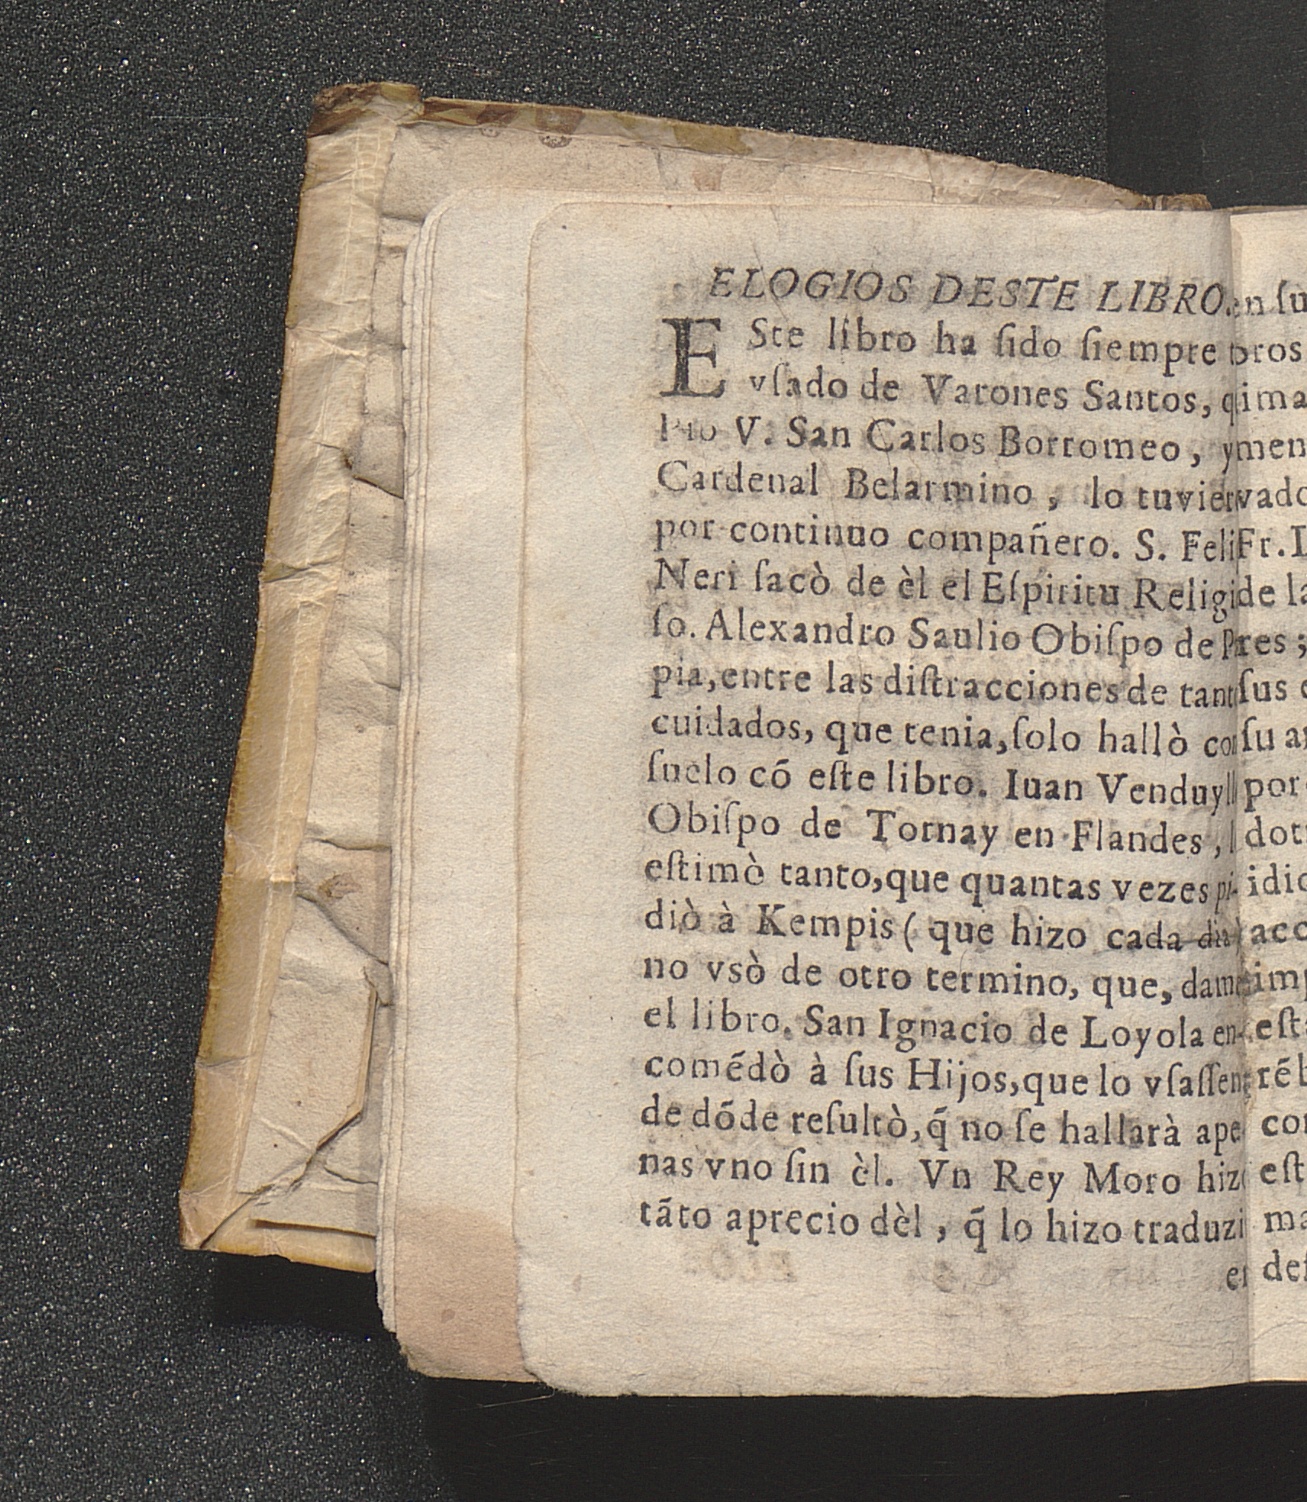 ELOGIOS DESTE LIBRO.
ESte libro ha ſido ſiempre
vſado de Varones Santos,
Pio V. San Carlos Borromeo, y
Cardenal Belarmino, lo tuvier
por continuo compañero. S. Feli
Neri ſacò de èl el Eſpiritu Religi
ſo. Alexandro Saulio Obiſpo de P
pia, entre las diſtracciones de tant
cuidados, que tenia, ſolo hallò con
ſuelo cõ eſte libro. Iuan Venduyll
Obiſpo de Tornay en Flandes,
eſtimò tanto, que quantas vezes pi-
diò à Kempis (que hizo cada dia)
no vsò de otro termino, que, dame
el libro. San Ignacio de Loyola en-
comẽdò à ſus Hijos, que lo vſaſſen;
de dõde reſultò, q̃ no ſe hallarà ape
nas vno ſin èl. Vn Rey Moro hizo
tãto aprecio dèl, q̃ lo hizo traduzi
en
en ſu
bros
ima
men
vado
Fr. L
de la
res;
ſus
ſu a
por
dot
idio
acc
imp
eſt
rẽ
con
eſt
ma
def